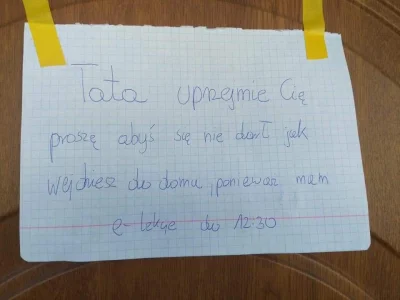 Tata uprzejmie Cię
proszę abyś się nie darł jak
wejdziesz do domu, ponieważ mam
e-lekcje do 12:30